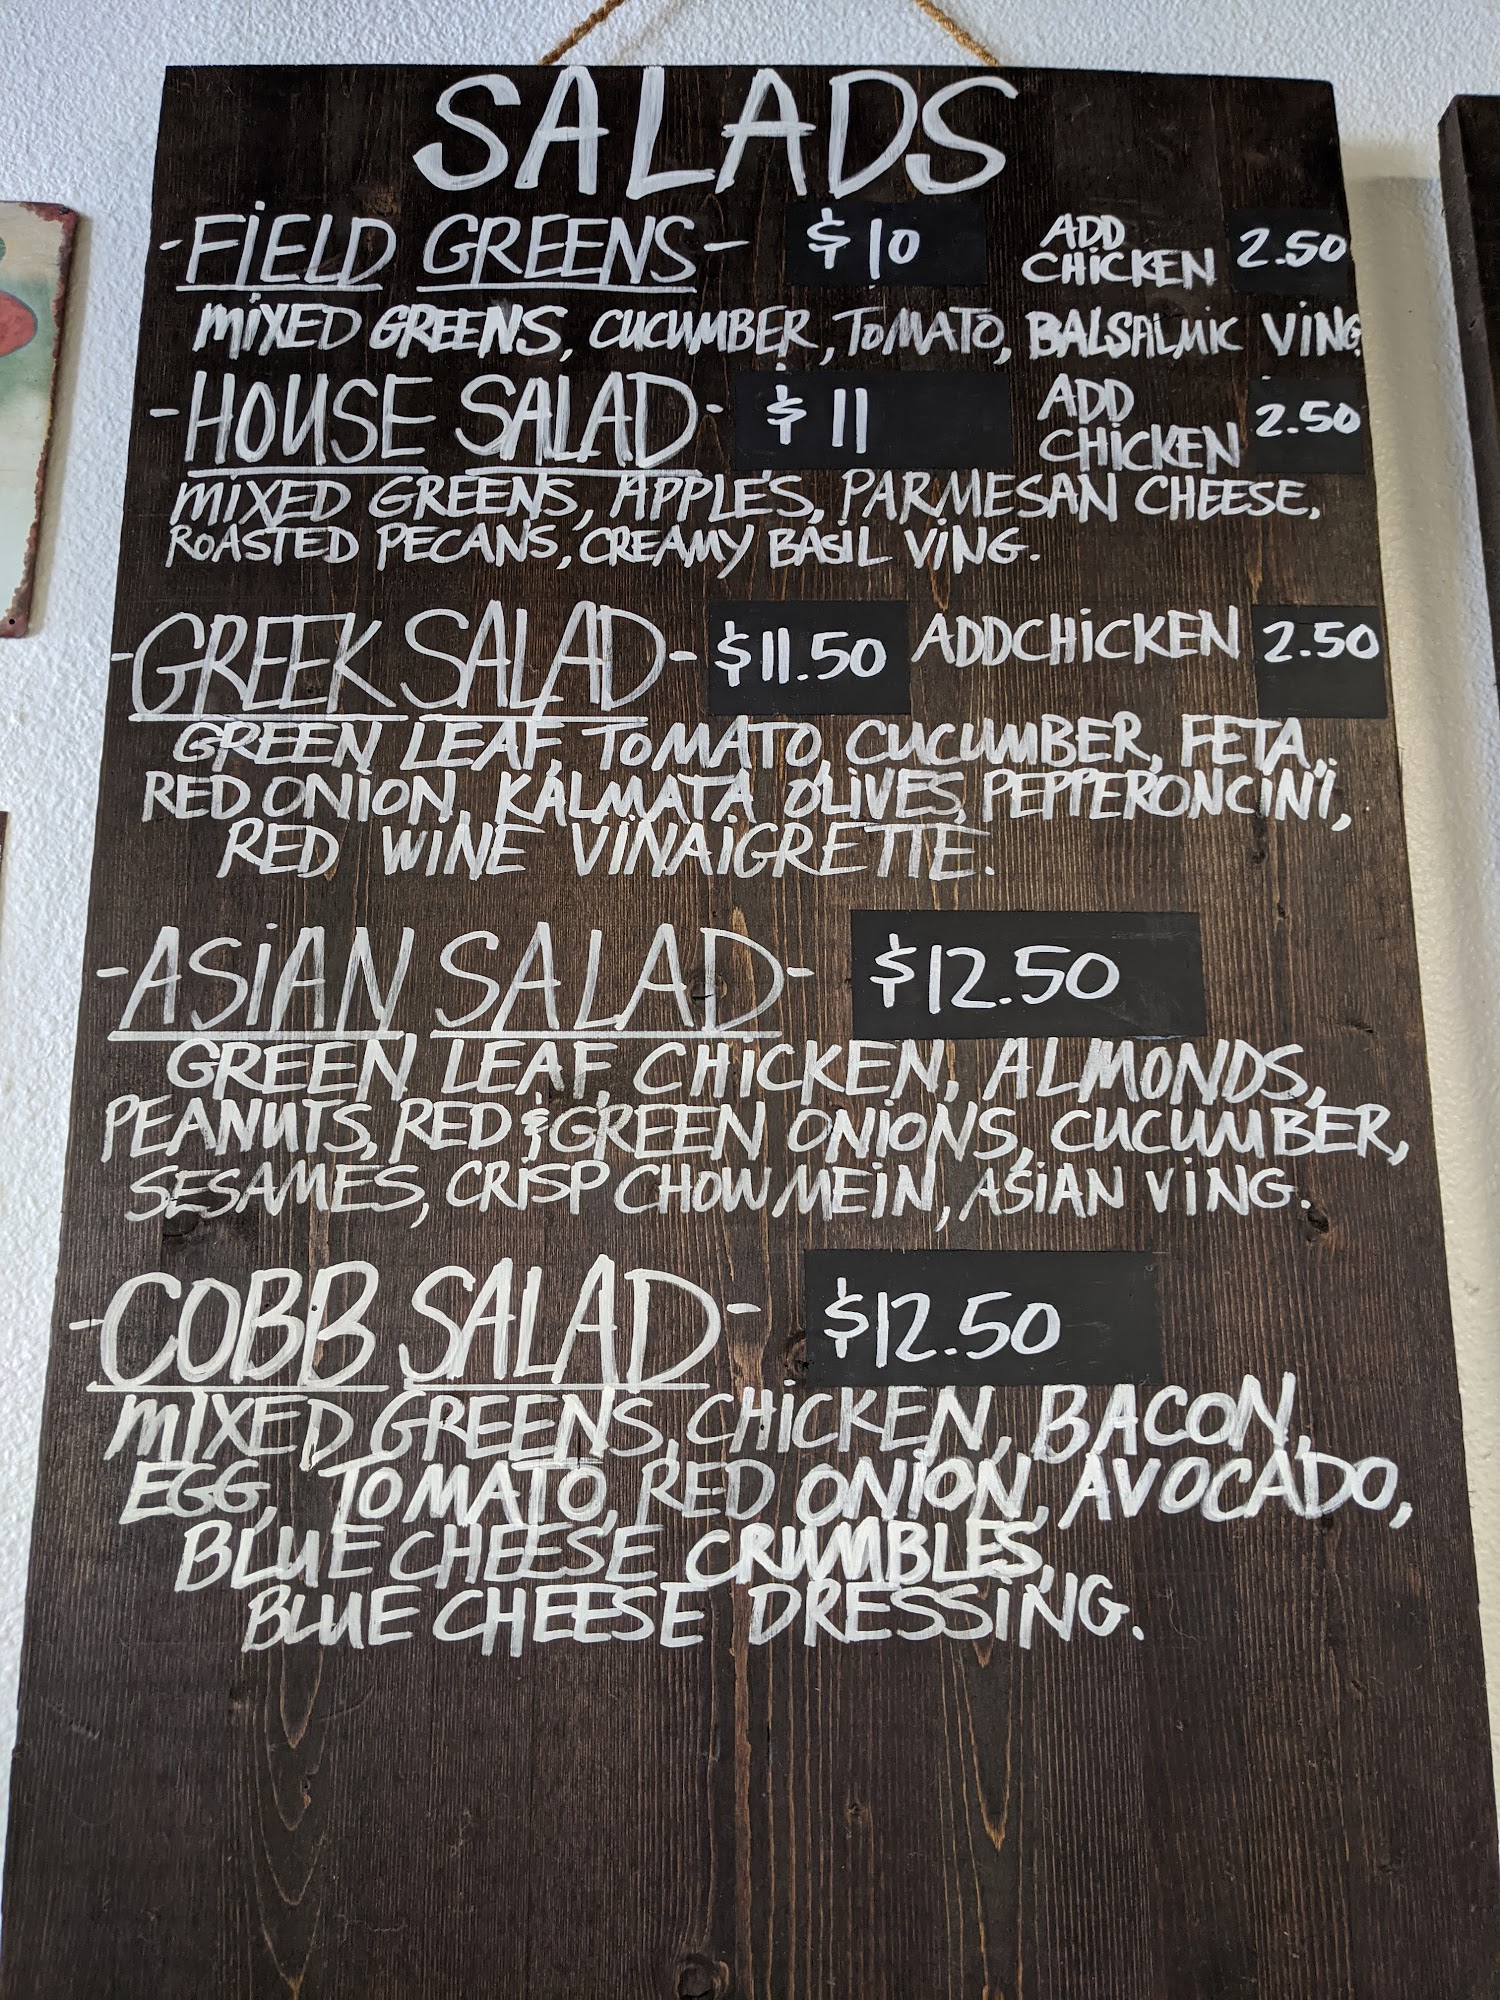 SALADS
-FiELD GREENS- $10 ADD CHiCKEN 2.50
MiXED GREENS, CUCUMBER, ToMATO, BALSALMIC ViNG
-HOUSE SALAD- $11 ADD CHiCKEN 2.50
MiXED GREENS, APPLE'S, PARMESAN CHEESE,
RoASTED PECANS, CREAMY BASiL ViNG.
-GREEK SALAD- $11.50 ADD CHiCKEN 2.50
GREEN LEAF, ToMATO, CUCUMBER, FETA,
RED ONiON, KALMATA OLiVES, PEPPERONCiNi,
RED WiNE ViNAiGRETTE.
-ASiAN SALAD- $12.50
GREEN LEAF, CHiCKEN, ALMONDS,
PEANUTS, RED & GREEN ONiONS, CUCUMBER,
SESAMES, CRiSP CHOW MEiN, ASiAN ViNG.
-COBB SALAD- $12.50
MiXED GREENS, CHiCKEN, BACON,
EGG, TOMATO, RED ONiON, AVOCADO,
BLUE CHEESE CRUMBLES,
BLUE CHEESE DRESSING.